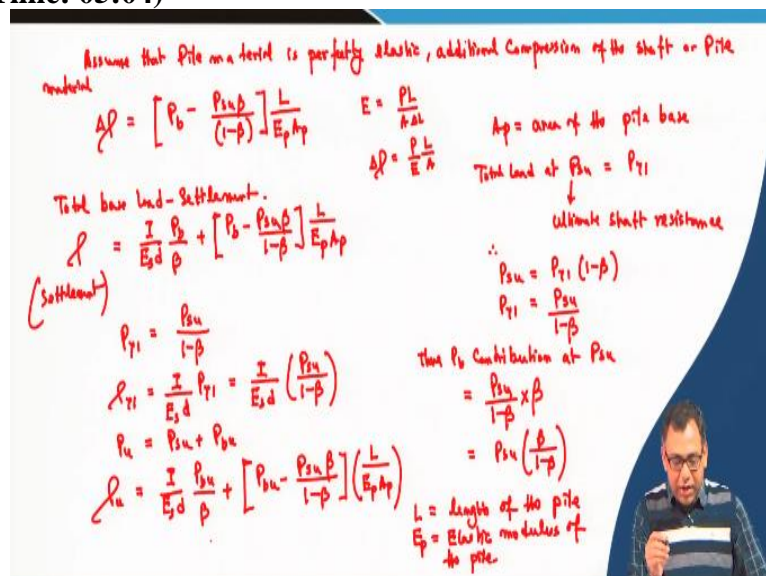 Time: 05:04)
Assume that Pile material is perfectly elastic, additional Compression of the shaft or Pile
material
Δρ = [P_b - P_su β / (1-β)] L / E_p A_p
E = PL / A ΔL
Δρ = P/E L/A
A_p = area of the pile base
Total load at P_su = P_γ1
↓
Ultimate shaft resistance
Total base load - Settlement.
ρ = I / E_s d P_b / β + [P_b - P_su β / 1-β] L / E_p A_p
(Settlement)
∴
P_su = P_γ1 (1-β)
P_γ1 = P_su / 1-β
P_γ1 = P_su / 1-β
ρ_γ1 = I / E_s d P_γ1 = I / E_s d (P_su / 1-β)
P_u = P_su + P_bu
ρ_u = I / E_s d P_bu / β + [P_bu - P_su β / 1-β] (L / E_p A_p)
Thus P_b Contribution at P_su
= P_su / 1-β × β
= P_su (β / 1-β)
L = length of the pile
E_p = Elastic modulus of
the pile.